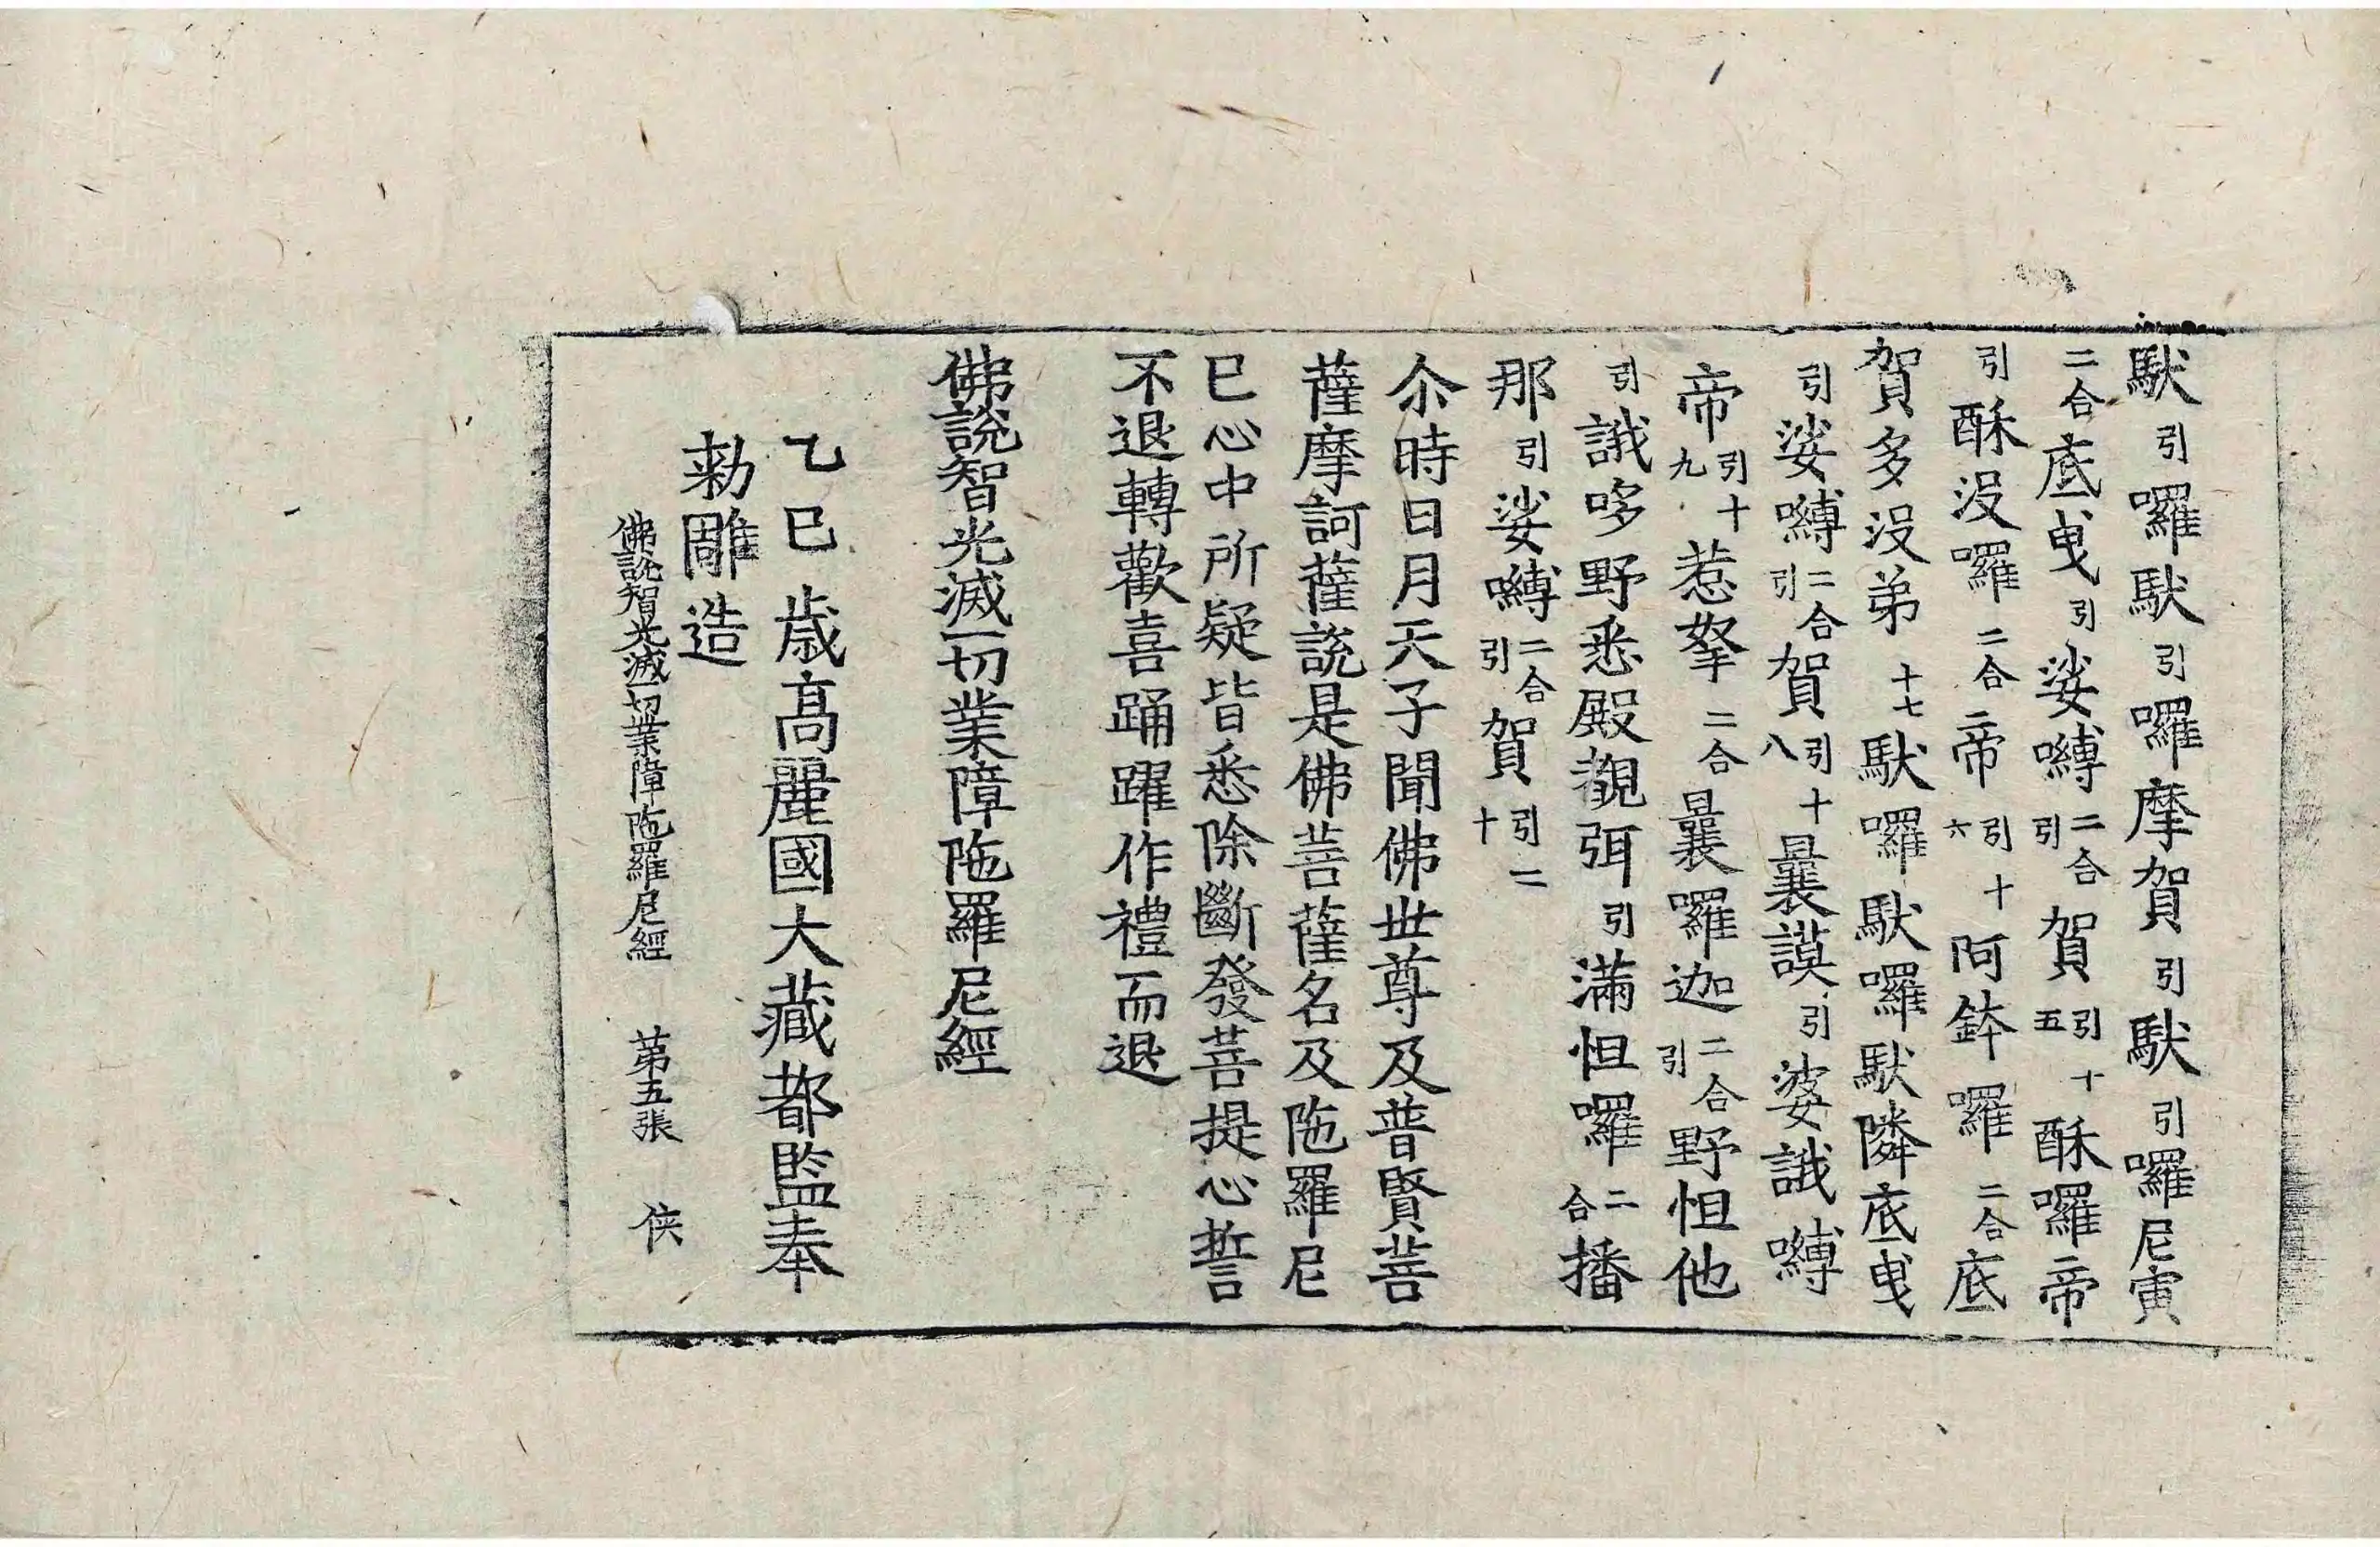 馱引囉馱引囉摩賀引馱引囉尼寅
二合底曳引娑嚩二合引賀引十五酥囉帝
引酥沒囉二合帝引十六阿鉢囉二合底
賀多沒弟十七馱囉馱囉馱隣底曳
引娑嚩二合引賀引十八曩謨引婆誐嚩
帝引十九惹拏二合曩囉迦二合引野怛他
引誐哆野悉殿覩弭引滿怛囉二合播
那引娑嚩二合引賀引二十
尒時日月天子聞佛世尊及普賢菩
薩摩訶薩說是佛菩薩名及陁羅尼
已心中所疑皆悉除斷發菩提心誓
不退轉歡喜踊躍作禮而退
佛說智光滅一切業障陁羅尼經
乙巳歲高麗國大藏都監奉
勑雕造
佛說智光滅一切業障陁羅尼經 第五張 俠